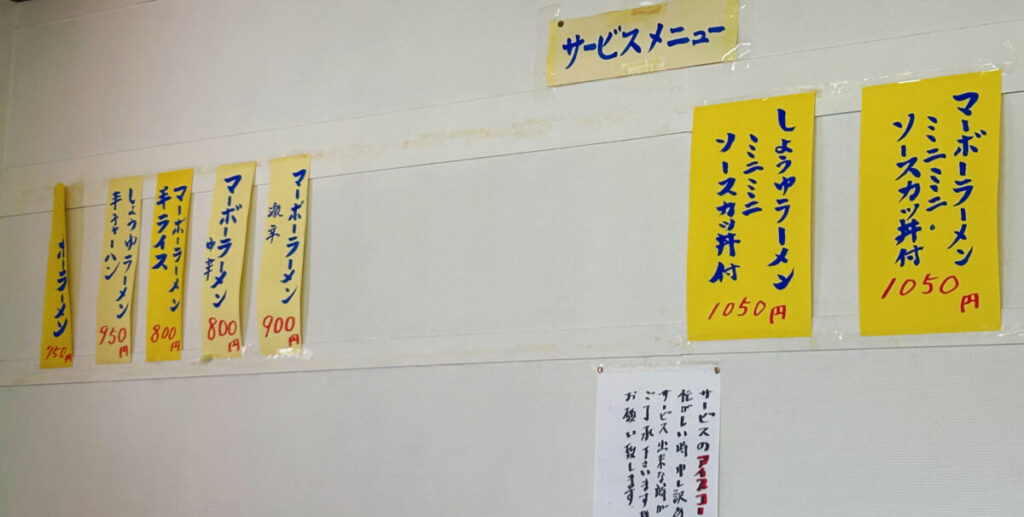 サービスメニュー
マーボーラーメン
ミニミニ
ソースカツ丼付
1050円
しょうゆラーメン
ミニミニ
ソースカツ丼付
1050円
マーボーラーメン
激辛
900円
マーボーラーメン
中辛
800円
マーボーラーメン
半ライス
800円
しょうゆラーメン
半チャーハン
950円
ボーラーメン
750円
サービスのアイスコー
忙がしい時申し訳
サービス出来ない時が
ご了承下さいます様
お願い致します